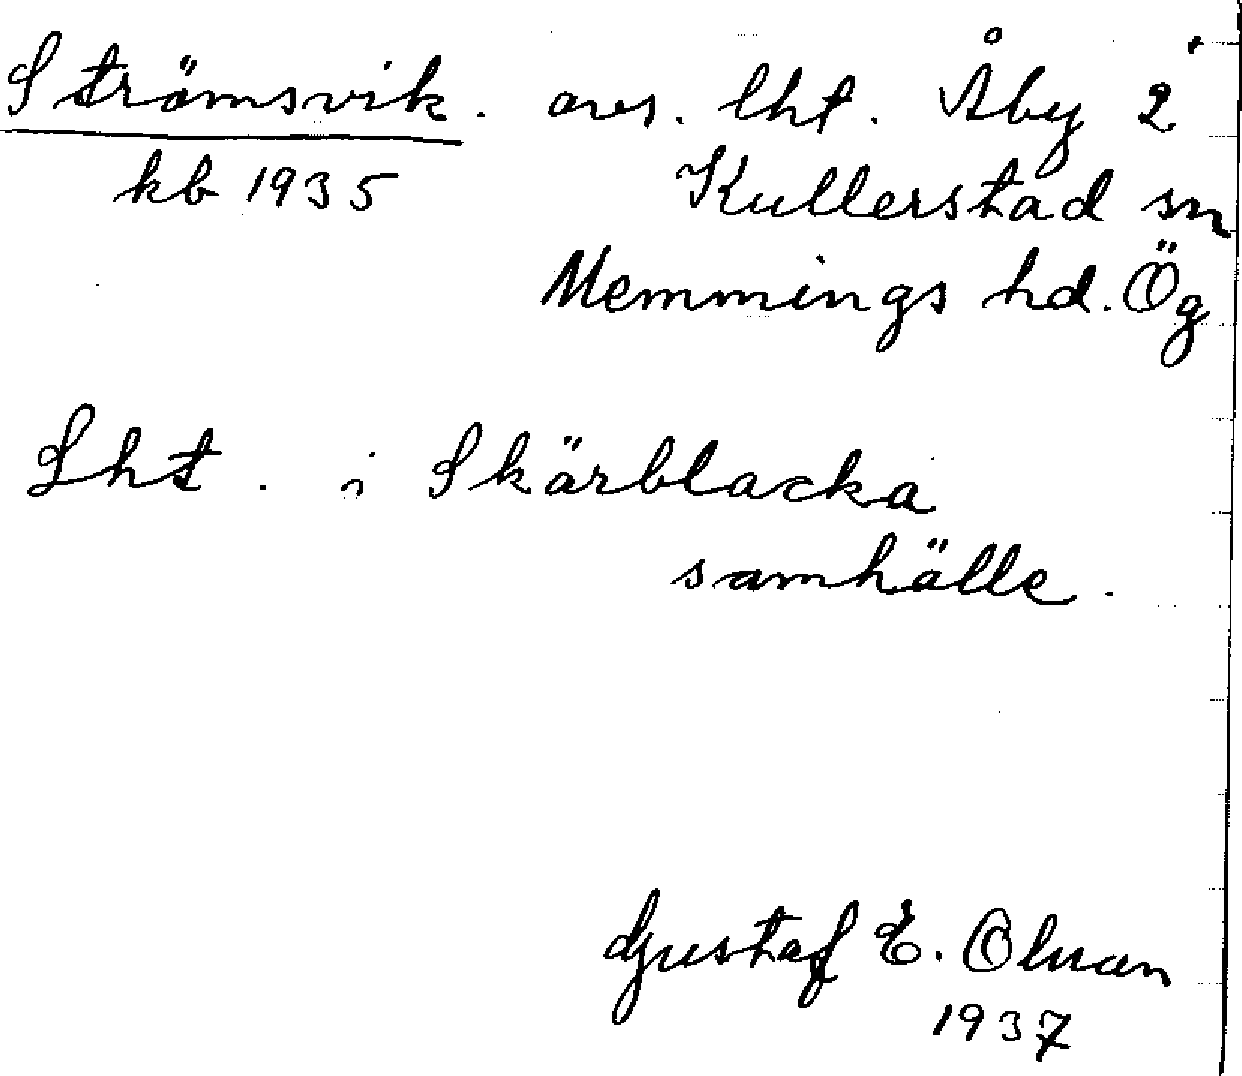 Strömsvik. avs. lht. Åby 2
kb 1935 Kullerstad sn
Memmings hd. Ög
Lht. i Skärblacka
samhälle.
Gustaf E. Olman
1937